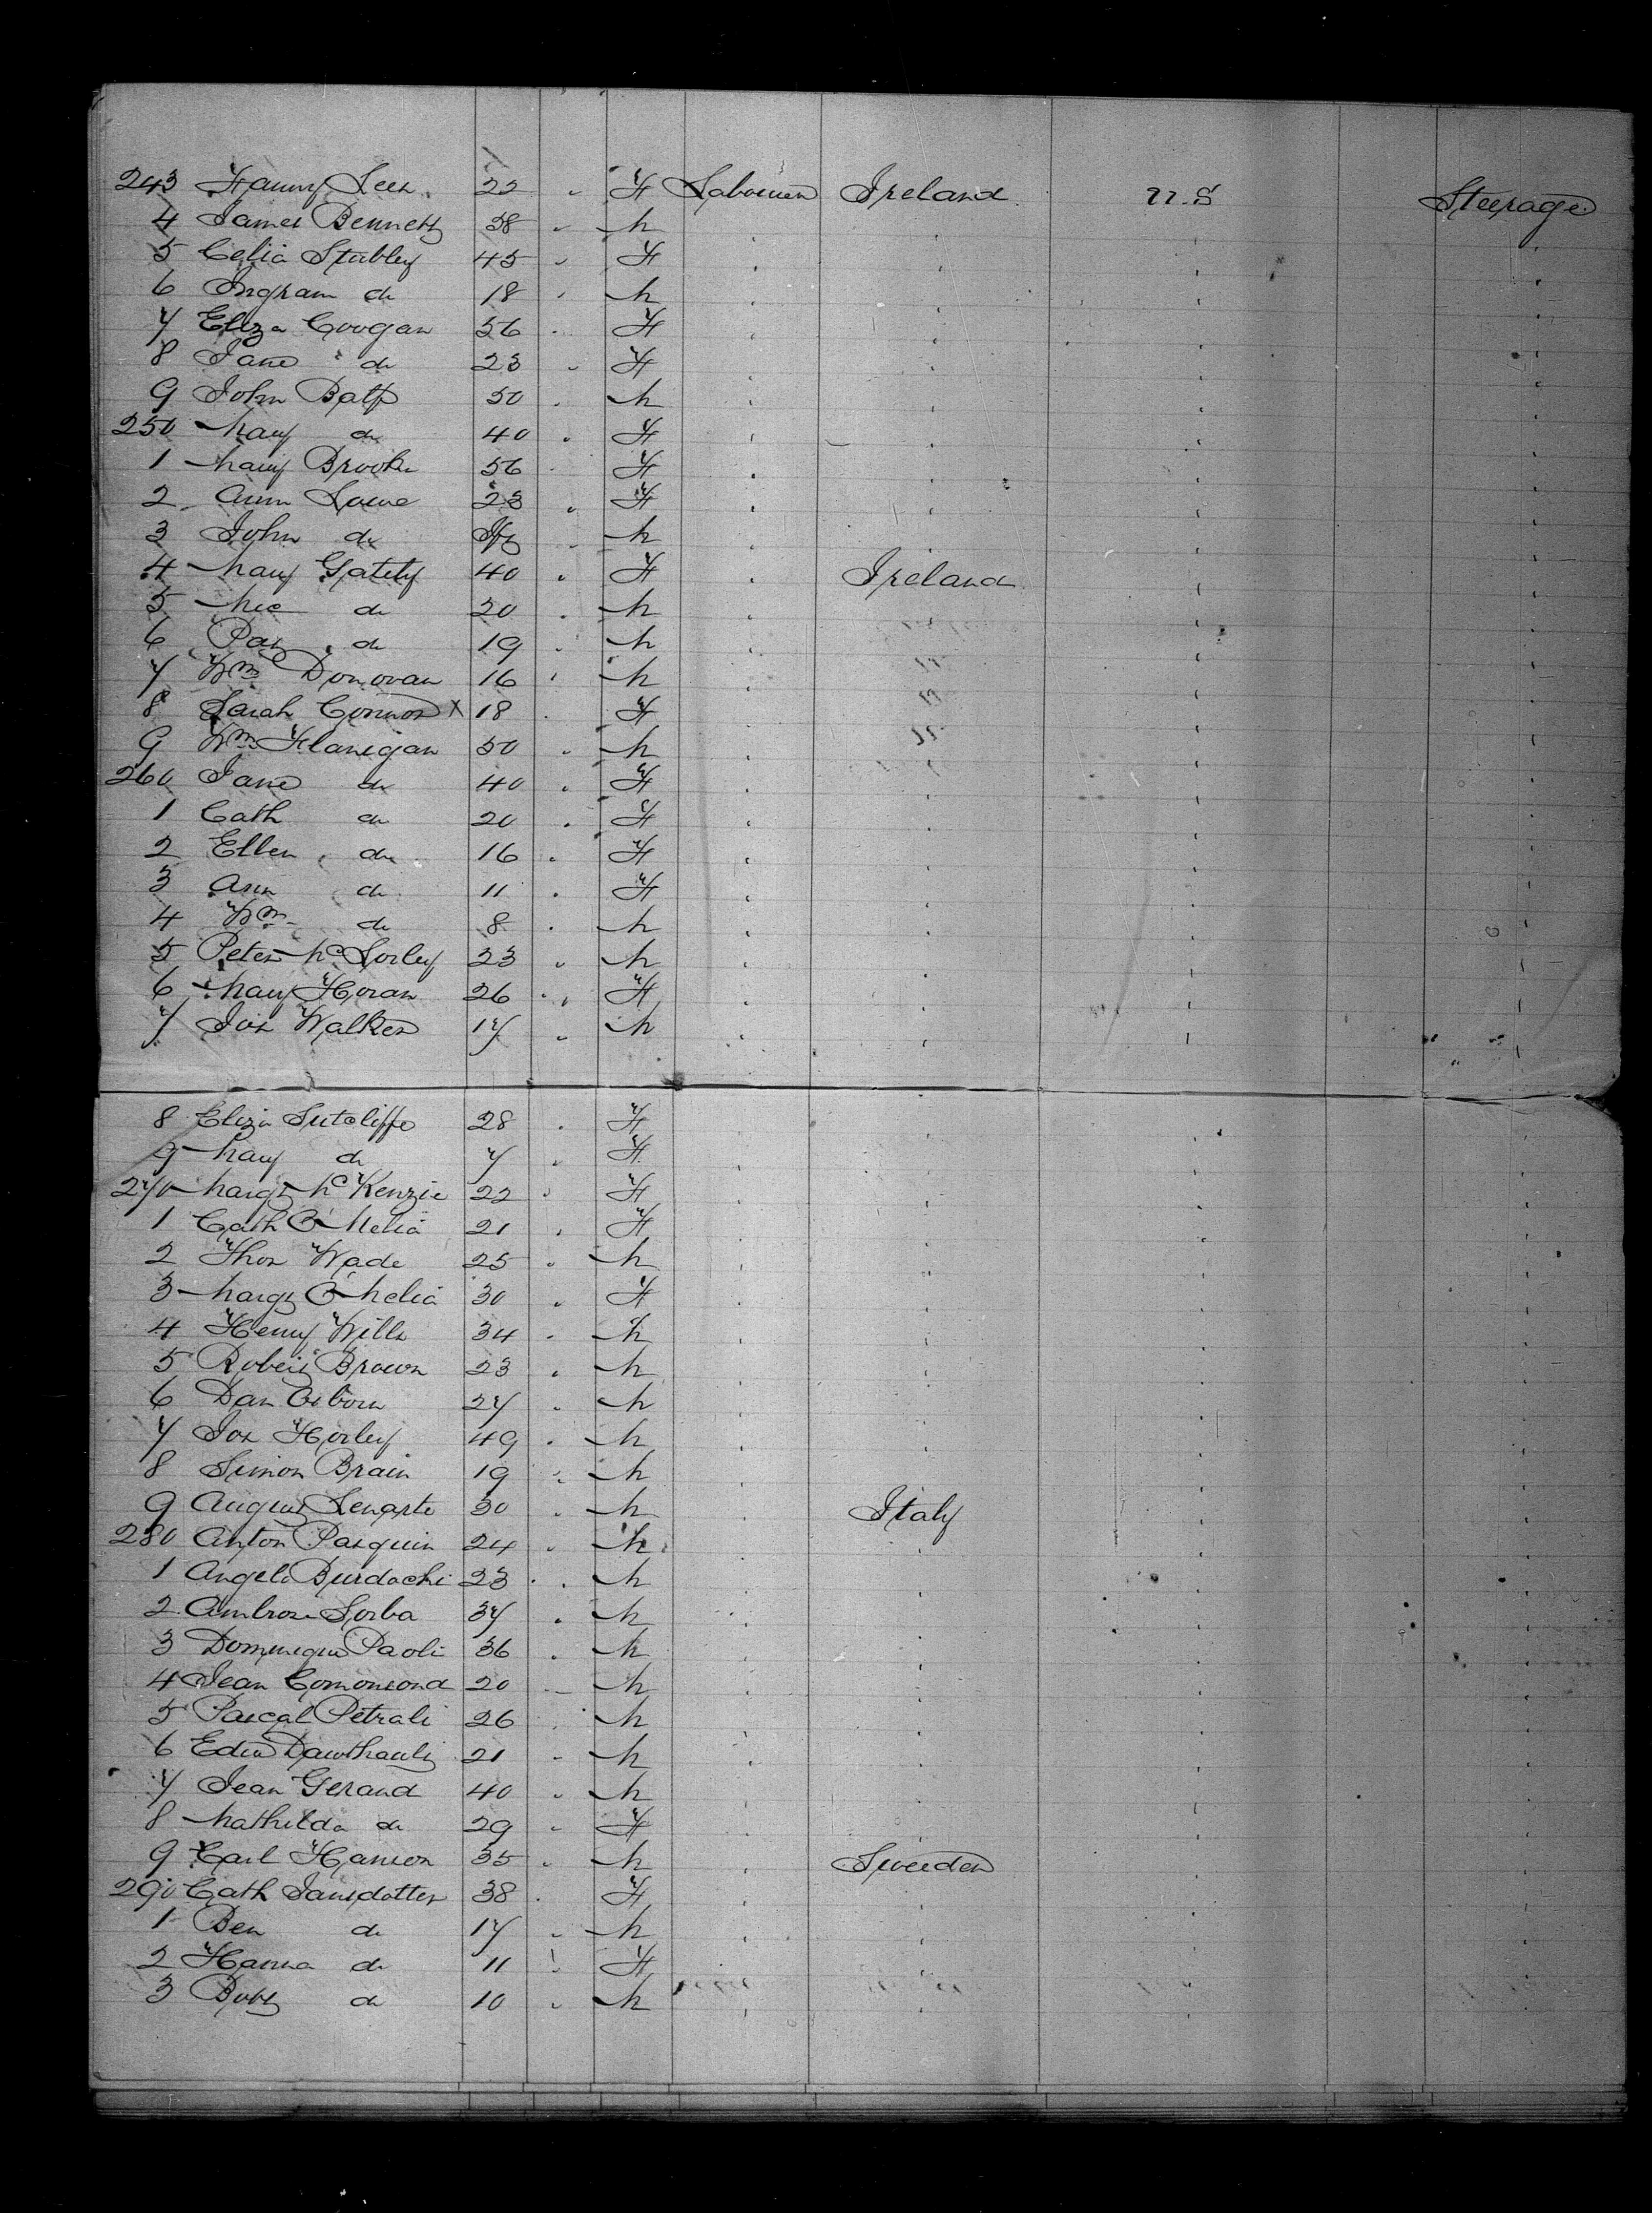 243 Fanny Lees 22 " F Labourer Ireland U.S Steerage
4 James Bennett 38 " M
5 Celia Stubley 45 " F
6 Ingram do 18 " M
7 Eliza Coogan 56 " F
8 Jane do 23 " F
9 John Batt 50 " M
250 Mary do 40 " F
1 Mary Brooks 56 " F
2 Ann Lowe 23 " F
3 John do Inf " M
4 Mary Gately 40 " F " Ireland
5 Mic do 20 " M
6 Pat do 19 " M
7 Wm Donovan 16 " M
8 Sarah Connor X 18 F
9 Wm Flanigan 50 " M
260 Jane do 40 " F
1 Cath do 20 " F
2 Ellen do 16 " F
3 Ann do 11 " F
4 Wm do 8 " M
5 Peter McSorley 23 " M
6 Mary Horan 26 " F
7 Jos Walker 17 " M
8 Eliza Sutcliffe 28 " F
9 Mary do 7 " F
270 Margt McKenzie 22 " F
1 Cath O'Melia 21 " F
2 Thos Wade 25 " M
3 Margt O'Melia 30 " F
4 Henry Wills 34 " M
5 Robert Brown 23 " M
6 Dan Osborn 27 " M
7 Jos Horley 49 " M
8 Simon Brain 19 " M
9 August Lenarte 30 " M " Italy
280 Anton Pasquin 24 " M
1 Angelo Burdachi 23 " M
2 Ambrose Sorba 37 " M
3 Dominique Paoli 36 " M
4 Jean 20 " M
5 Pascal Petrali 26 " M
6 Edw 21 " M
7 Jean Gerand 40 " M
8 Mathilda do 29 " F
9 Carl Hanson 35 " M " Sweden
290 Cath Jansdotter 38 " F
1 Ben do 17 " M
2 Hanna do 11 " F
3 do 10 " M